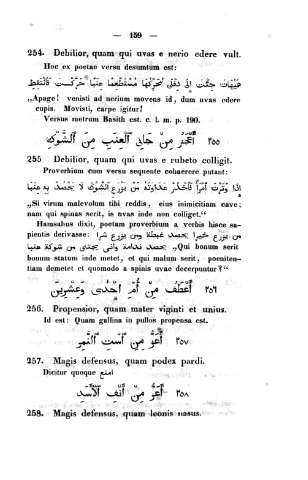 — 159 —
254. Debilior, quam qui uvas e nerio edere vult.
Hoc ex poetae versu desumtum est:
هيهات جئت الى دفلى تحركها مستطعما عنبا حركت فالتقط
„Apage! venisti ad nerium movens id, dum uvas edere
cupis. Movisti, carpe igitur!
Versus metrum Basith est. c. l. m. p. 190.
٢٥٥ أَعْجَزُ مِنْ جَانِي ٱلْعِنَبِ مِنَ ٱلشَّوْكِ
255 Debilior, quam qui uvas e rubeto colligit.
Proverbium cum versu sequente cohaerere putant:
اذا وترت امرأ فاحذر عداوته من يزرع الشوك لا يحصد به عنبا
„Si virum malevolum tibi reddis, eius inimicitiam cave;
nam qui spinas serit, is uvas inde non colliget.“
Hamsahus dixit, poetam proverbium a verbis hisce sa-
pientis derivasse: من يزرع خيرا يحصد غبطة ومن يزرع شرا
يحصد ندامة وانى يجتنى من شوكة عنبا „Qui bonum serit
bonum statum inde metet, et qui malum serit, poeniten-
tiam demetet et quomodo a spinis uvae decerpuntur?“
٢٥٦ أَعْطَفُ مِنْ أُمِّ إِحْدَى وَعِشْرِينَ
256. Propensior, quam mater viginti et unius.
Id est: Quam gallina in pullos propensa est.
٢٥٧ أَعَزُّ مِنِ ٱسْتِ ٱلنَّمِرِ
257. Magis defensus, quam podex pardi.
Dicitur quoque امنع
٢٥٨ أَعَزُّ مِنْ أَنْفِ ٱلْأَسَدِ
258. Magis defensus, quam leonis nasus.